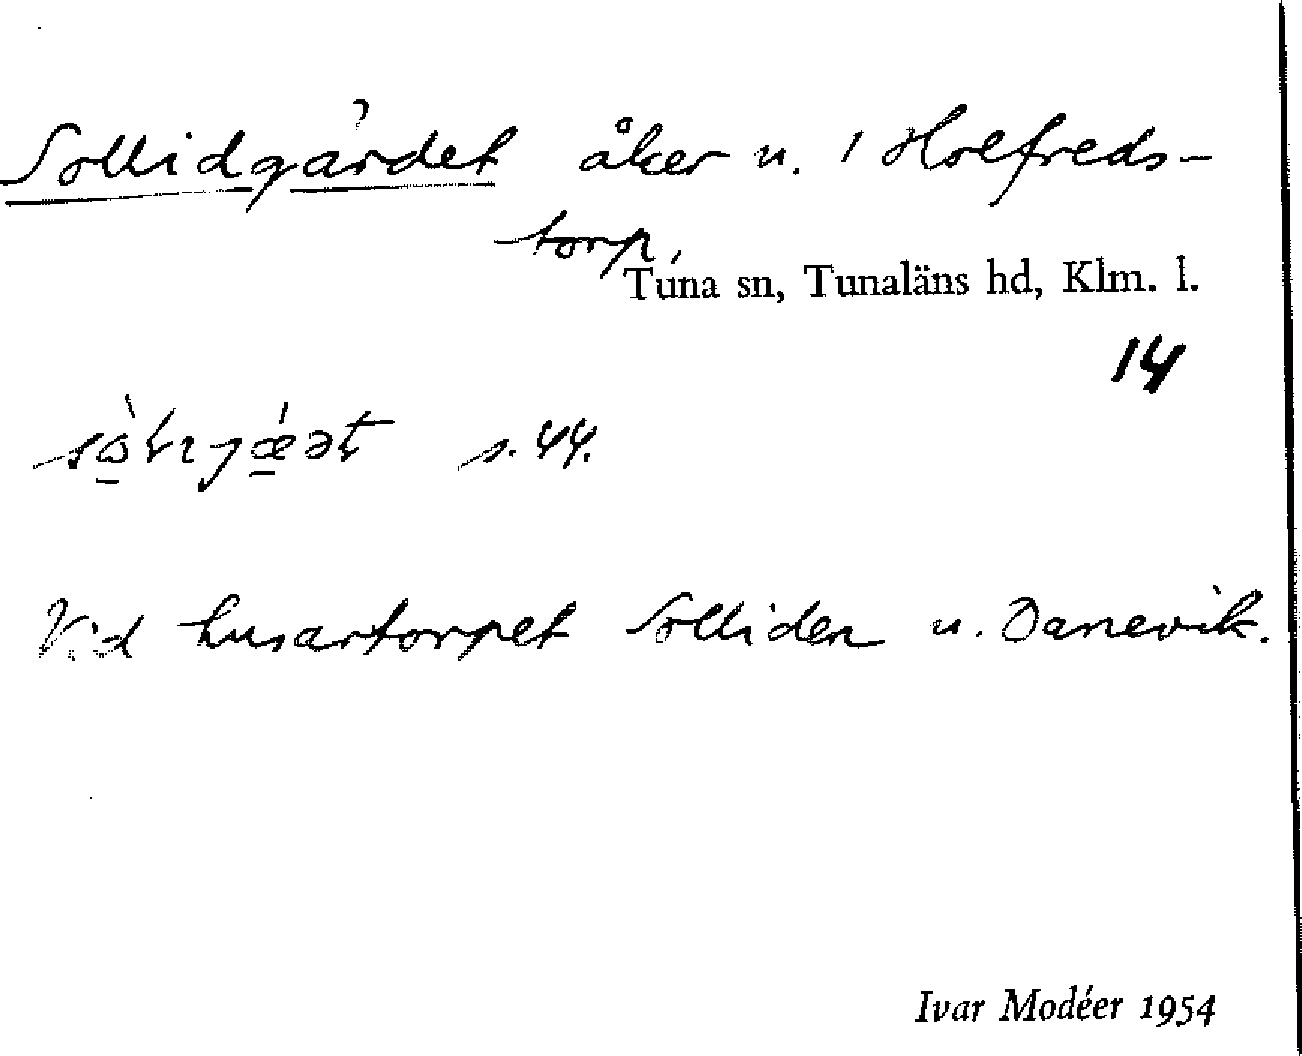 Sollidgärdet åker u. 1 Holfreds-
torp,
Tuna sn, Tunaläns hd, Klm. l.
14
s. 44.
Vid husartorpet Solliden u. Danevik.
Ivar Modéer 1954